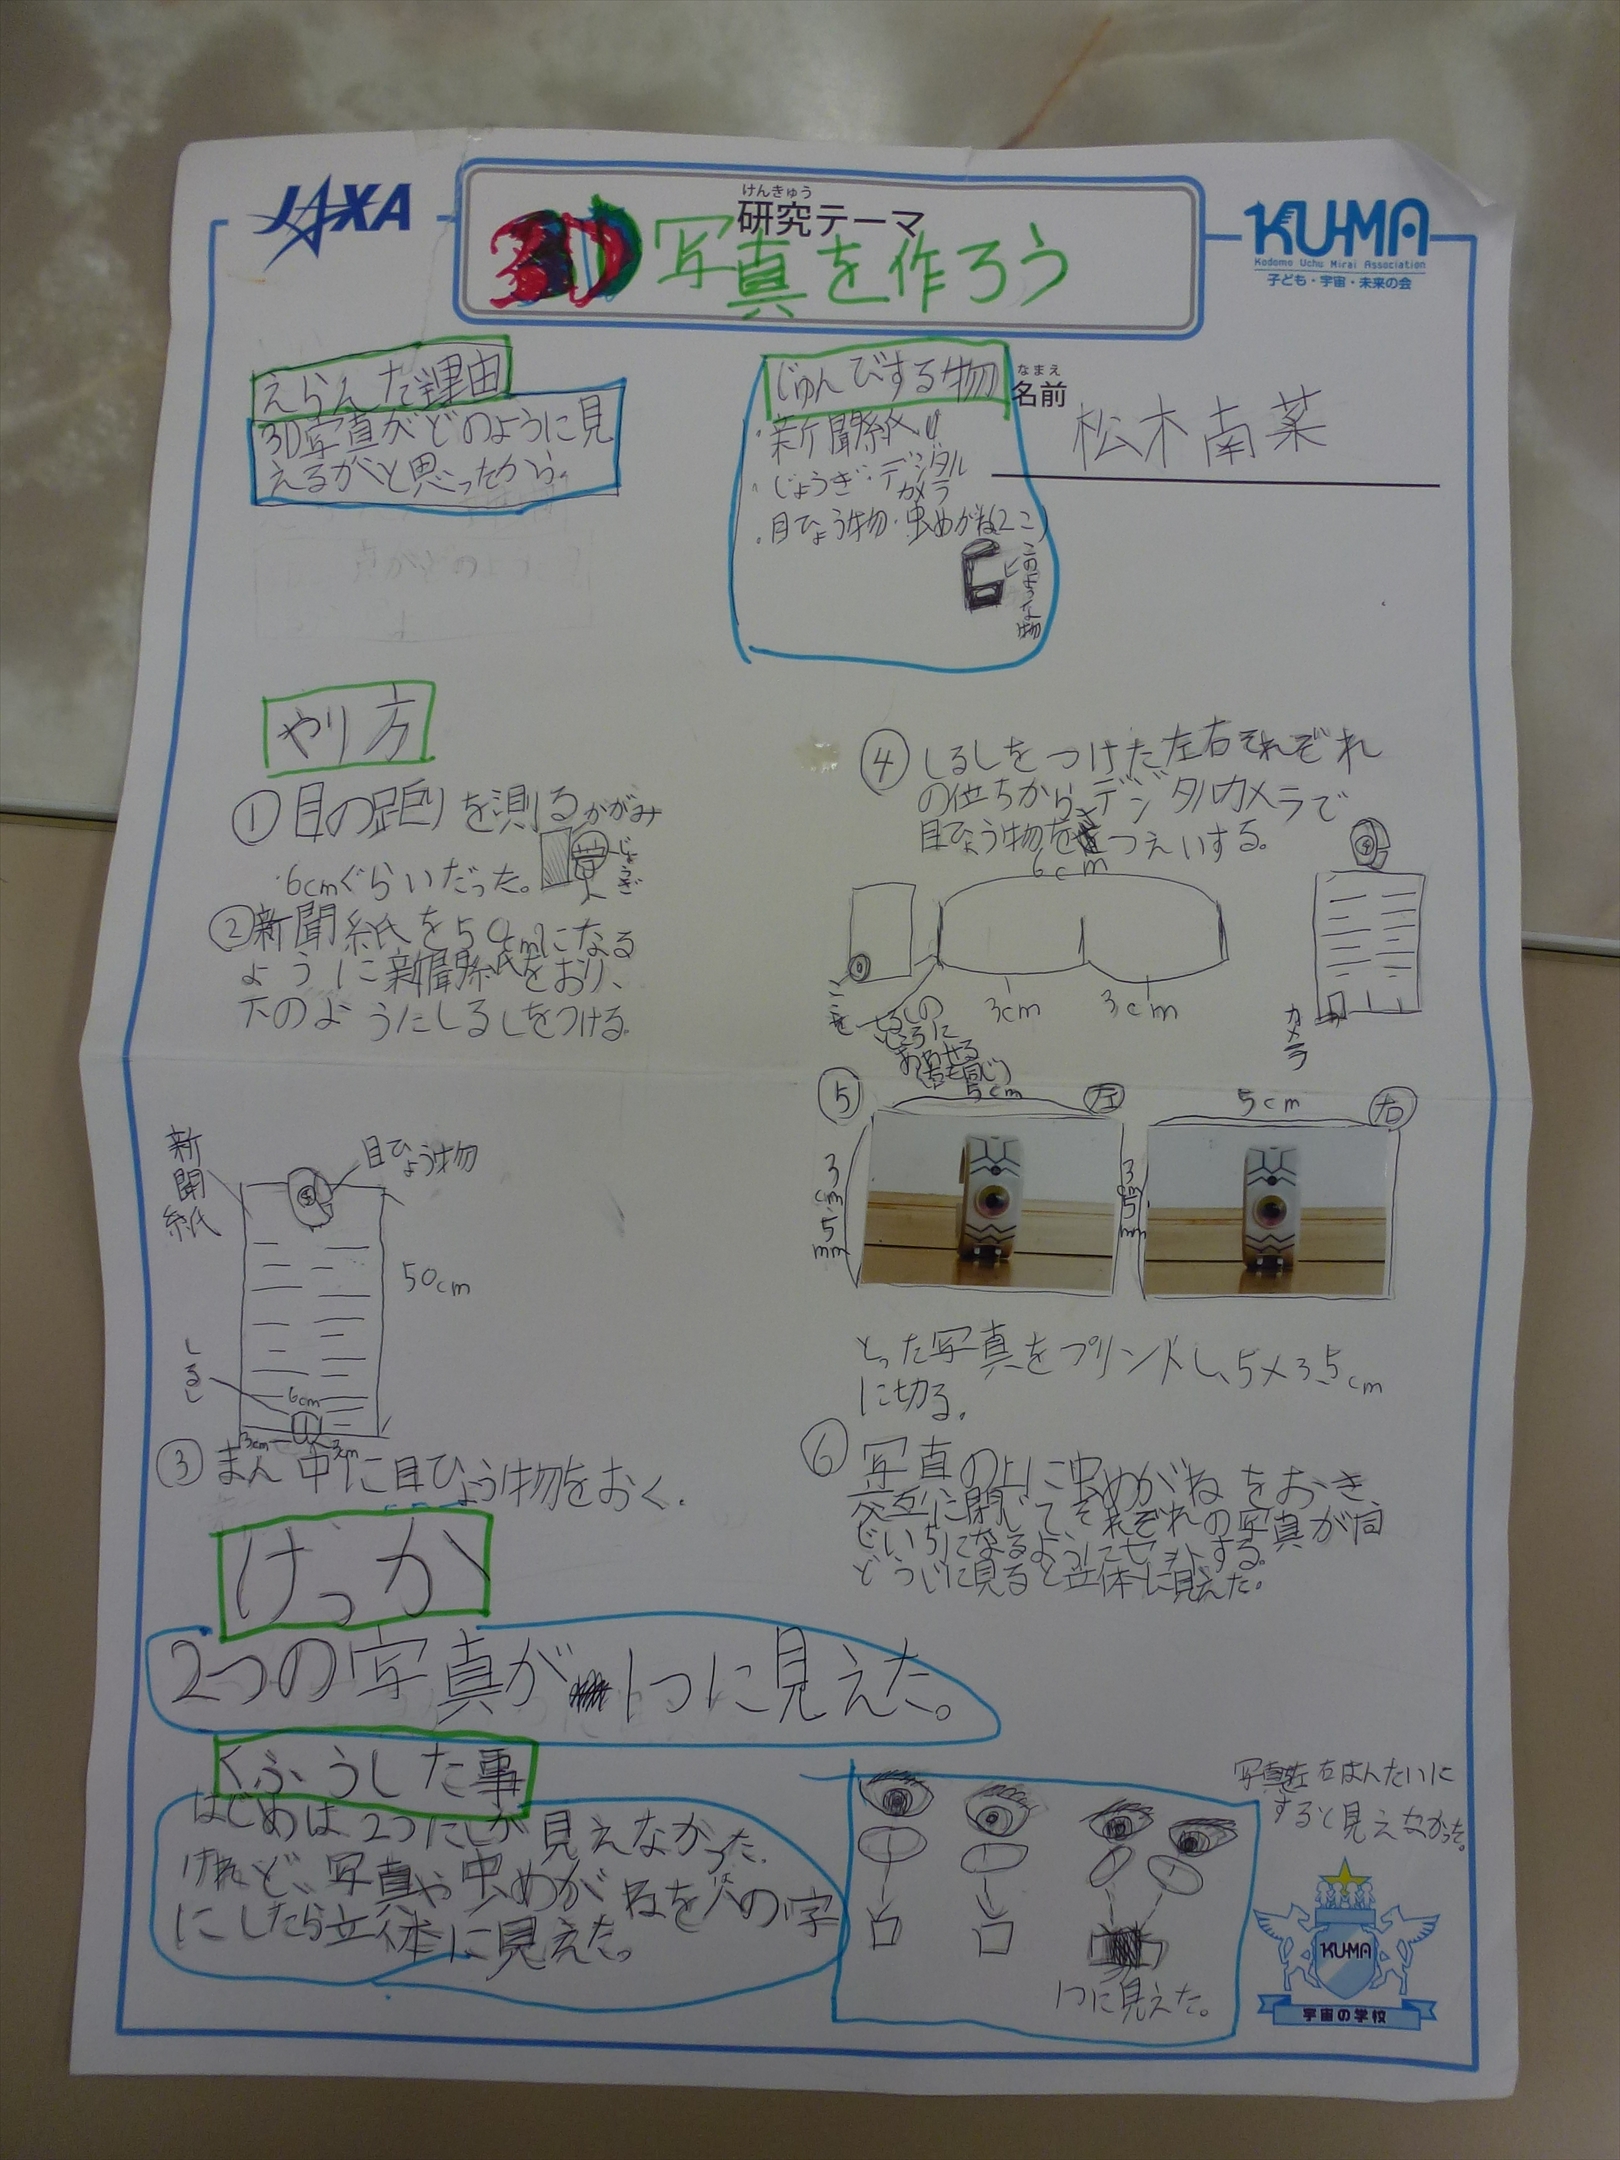 JAXA
けんきゅう
研究テーマ
3D写真を作ろう
KU-MA
Kodomo Uchu Mirai Association
子ども・宇宙・未来の会
えらんだ理由
3D写真がどのように見
えるがと思ったから。
じゅんびする物
・新聞紙
・じょうぎ・デジタル
カメラ
・目ひょう物・虫めがね(2こ)
このような物
なまえ
名前
松木南菜
やり方
①目の距りを測る
かがみ
じょうぎ
・6cmぐらいだった。
②新聞紙を50cmになる
ように新聞紙をおり、
下のようにしるしをつける。
新聞紙
目ひょう物
50cm
しるし
6cm
3cm
3cm
③まん中に目ひょう物をおく.
④しるしをつけた左右それぞれ
の位ちからデジタルカメラで
目ひょう物をさつえいする。
6cm
3cm
3cm
ここを
しるしの
ところに
あわせる
(右も同じ)
カメラ
⑤
5cm
左
5cm
右
3cm5mm
3cm5mm
とった写真をプリントし、5×3.5cm
に切る。
⑥写真の上に虫めがねをおき
交互に閉じてそれぞれの写真が同
じいちになるようにセットする。
どうじに見ると立体に見えた。
けっか
2つの写真が1つに見えた。
くふうした事
はじめは2つにしか見えなかった.
けれど、写真や虫めがねを八の字
にしたら立体に見えた。
1つに見えた。
写真左右はんたいに
すると見えなかった。
KU-MA
宇宙の学校